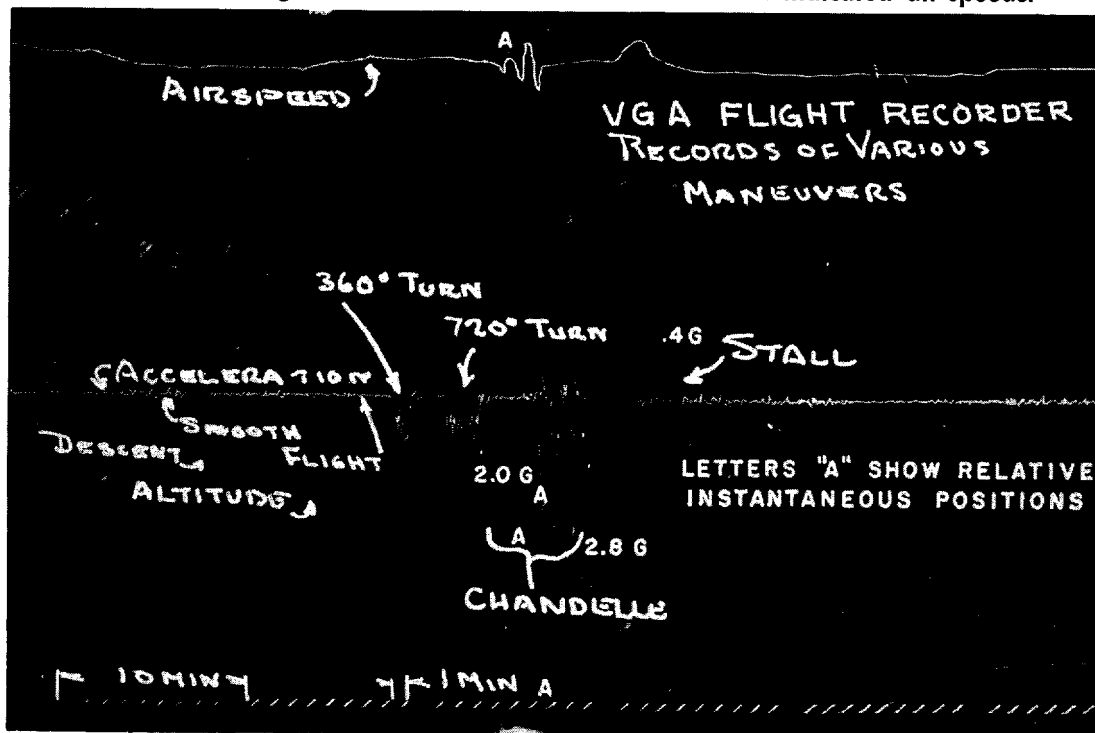 indicated air speeds.
A
AIRSPEED
VGA FLIGHT RECORDER
RECORDS OF VARIOUS
MANEUVERS
360° TURN
720° TURN
.4G STALL
ACCELERATION
SMOOTH
FLIGHT
DESCENT
ALTITUDE
LETTERS "A" SHOW RELATIVE
INSTANTANEOUS POSITIONS
2.0 G
A
A
2.8 G
CHANDELLE
10 MIN
1 MIN A